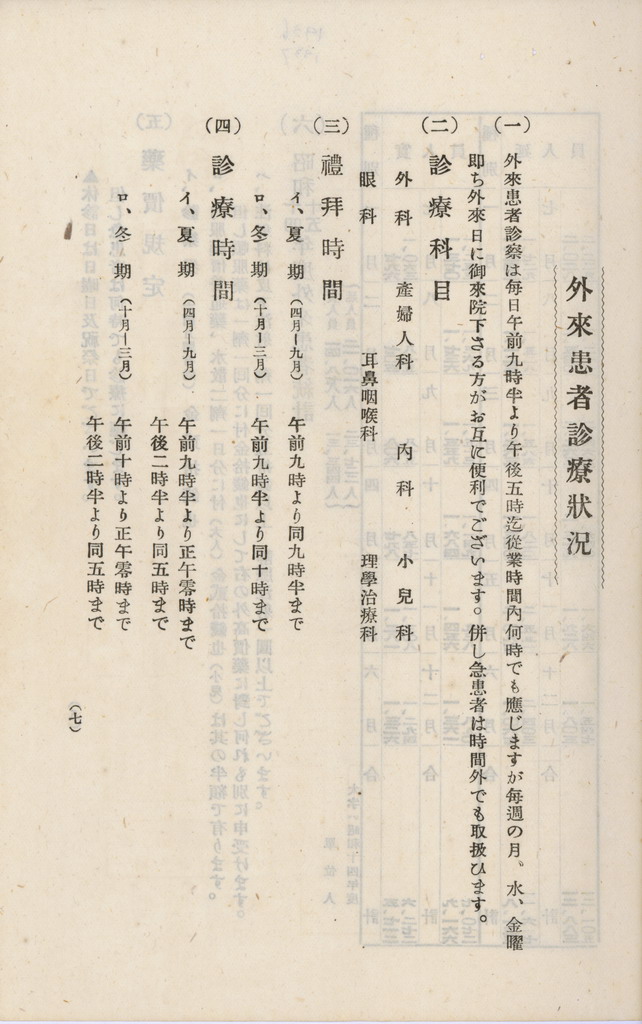 外來患者診療狀況
(一) 外來患者診察は每日午前九時半より午後五時迄從業時間內何時でも應じますが每週の月、水、金曜
即ち外來日に御來院下さる方がお互に便利でございます。併し急患者は時間外でも取扱ひます。
(二) 診療科目
外科 產婦人科 內科 小兒科
眼科 耳鼻咽喉科 理學治療科
(三) 禮拜時間
イ、夏期(四月ー九月) 午前九時より同九時半まで
ロ、冬期(十月ー三月) 午前九時半より同十時まで
(四) 診療時間
イ、夏期(四月ー九月) 午前九時半より正午零時まで
午後二時半より同五時まで
ロ、冬期(十月ー三月) 午前十時より正午零時まで
午後二時半より同五時まで
(七)